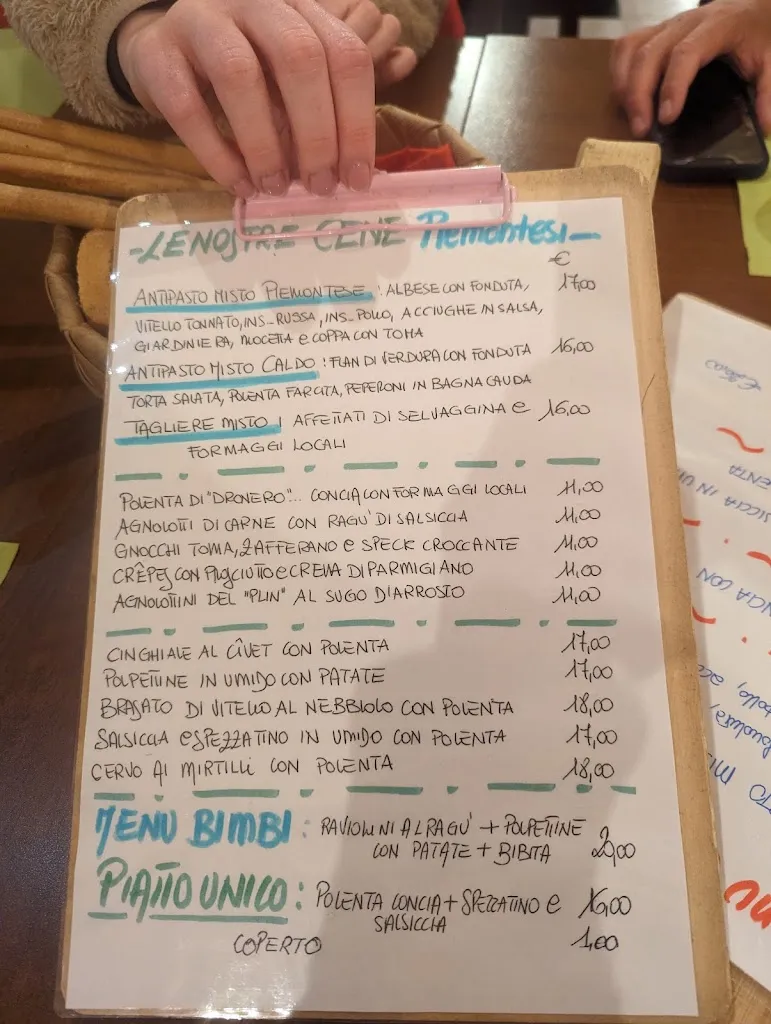 -LE NOSTRE CENE Piemontesi-
€
ANTIPASTO MISTO PIEMONTESE: ALBESE CON FONDUTA, 17,00
VITELLO TONNATO, INS_RUSSA, INS_POLLO, ACCIUGHE IN SALSA,
GIARDINIERA, NOCETTA e COPPA CON TOMA
ANTIPASTO MISTO CALDO: FLAN DI VERDURA CON FONDUTA 16,00
TORTA SALATA, POLENTA FARCITA, PEPERONI IN BAGNA CAUDA
TAGLIERE MISTO: AFFETTATI DI SELVAGGINA e 16,00
FORMAGGI LOCALI
POLENTA DI "DRONERO"... CONCIA CON FORMAGGI LOCALI 11,00
AGNOLOTTI DI CARNE CON RAGU' DI SALSICCIA 11,00
GNOCCHI TOMA, ZAFFERANO e SPECK CROCCANTE 11,00
CRÊPES CON PROSCIUTTO e CREMA DI PARMIGIANO 11,00
AGNOLOTTINI DEL "PLIN" AL SUGO D'ARROSTO 11,00
CINGHIALE AL CÎVET CON POLENTA 17,00
POLPETTINE IN UMIDO CON PATATE 17,00
BRASATO DI VITELLO AL NEBBIOLO CON POLENTA 18,00
SALSICCIA e SPEZZATINO IN UMIDO CON POLENTA 17,00
CERVO AI MIRTILLI CON POLENTA 18,00
MENU BIMBI: RAVIOLINI AL RAGU' + POLPETTINE
CON PATATE + BIBITA
PIATTO UNICO: POLENTA CONCIA + SPEZZATINO e 16,00
SALSICCIA
COPERTO 1,00